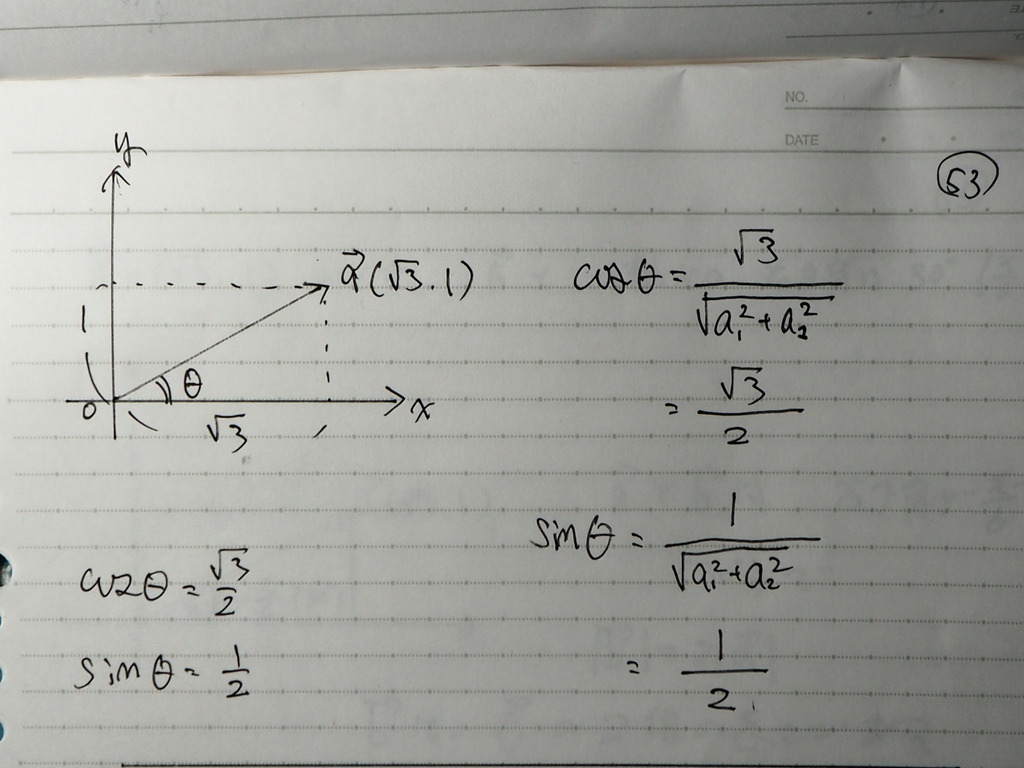 NO.
DATE
53
y
a⃗(√3.1)
1
θ
0
x
√3
cosθ = √3/√(a₁²+a₂²)
= √3/2
sinθ = 1/√(a₁²+a₂²)
= 1/2
cosθ = √3/2
sinθ = 1/2